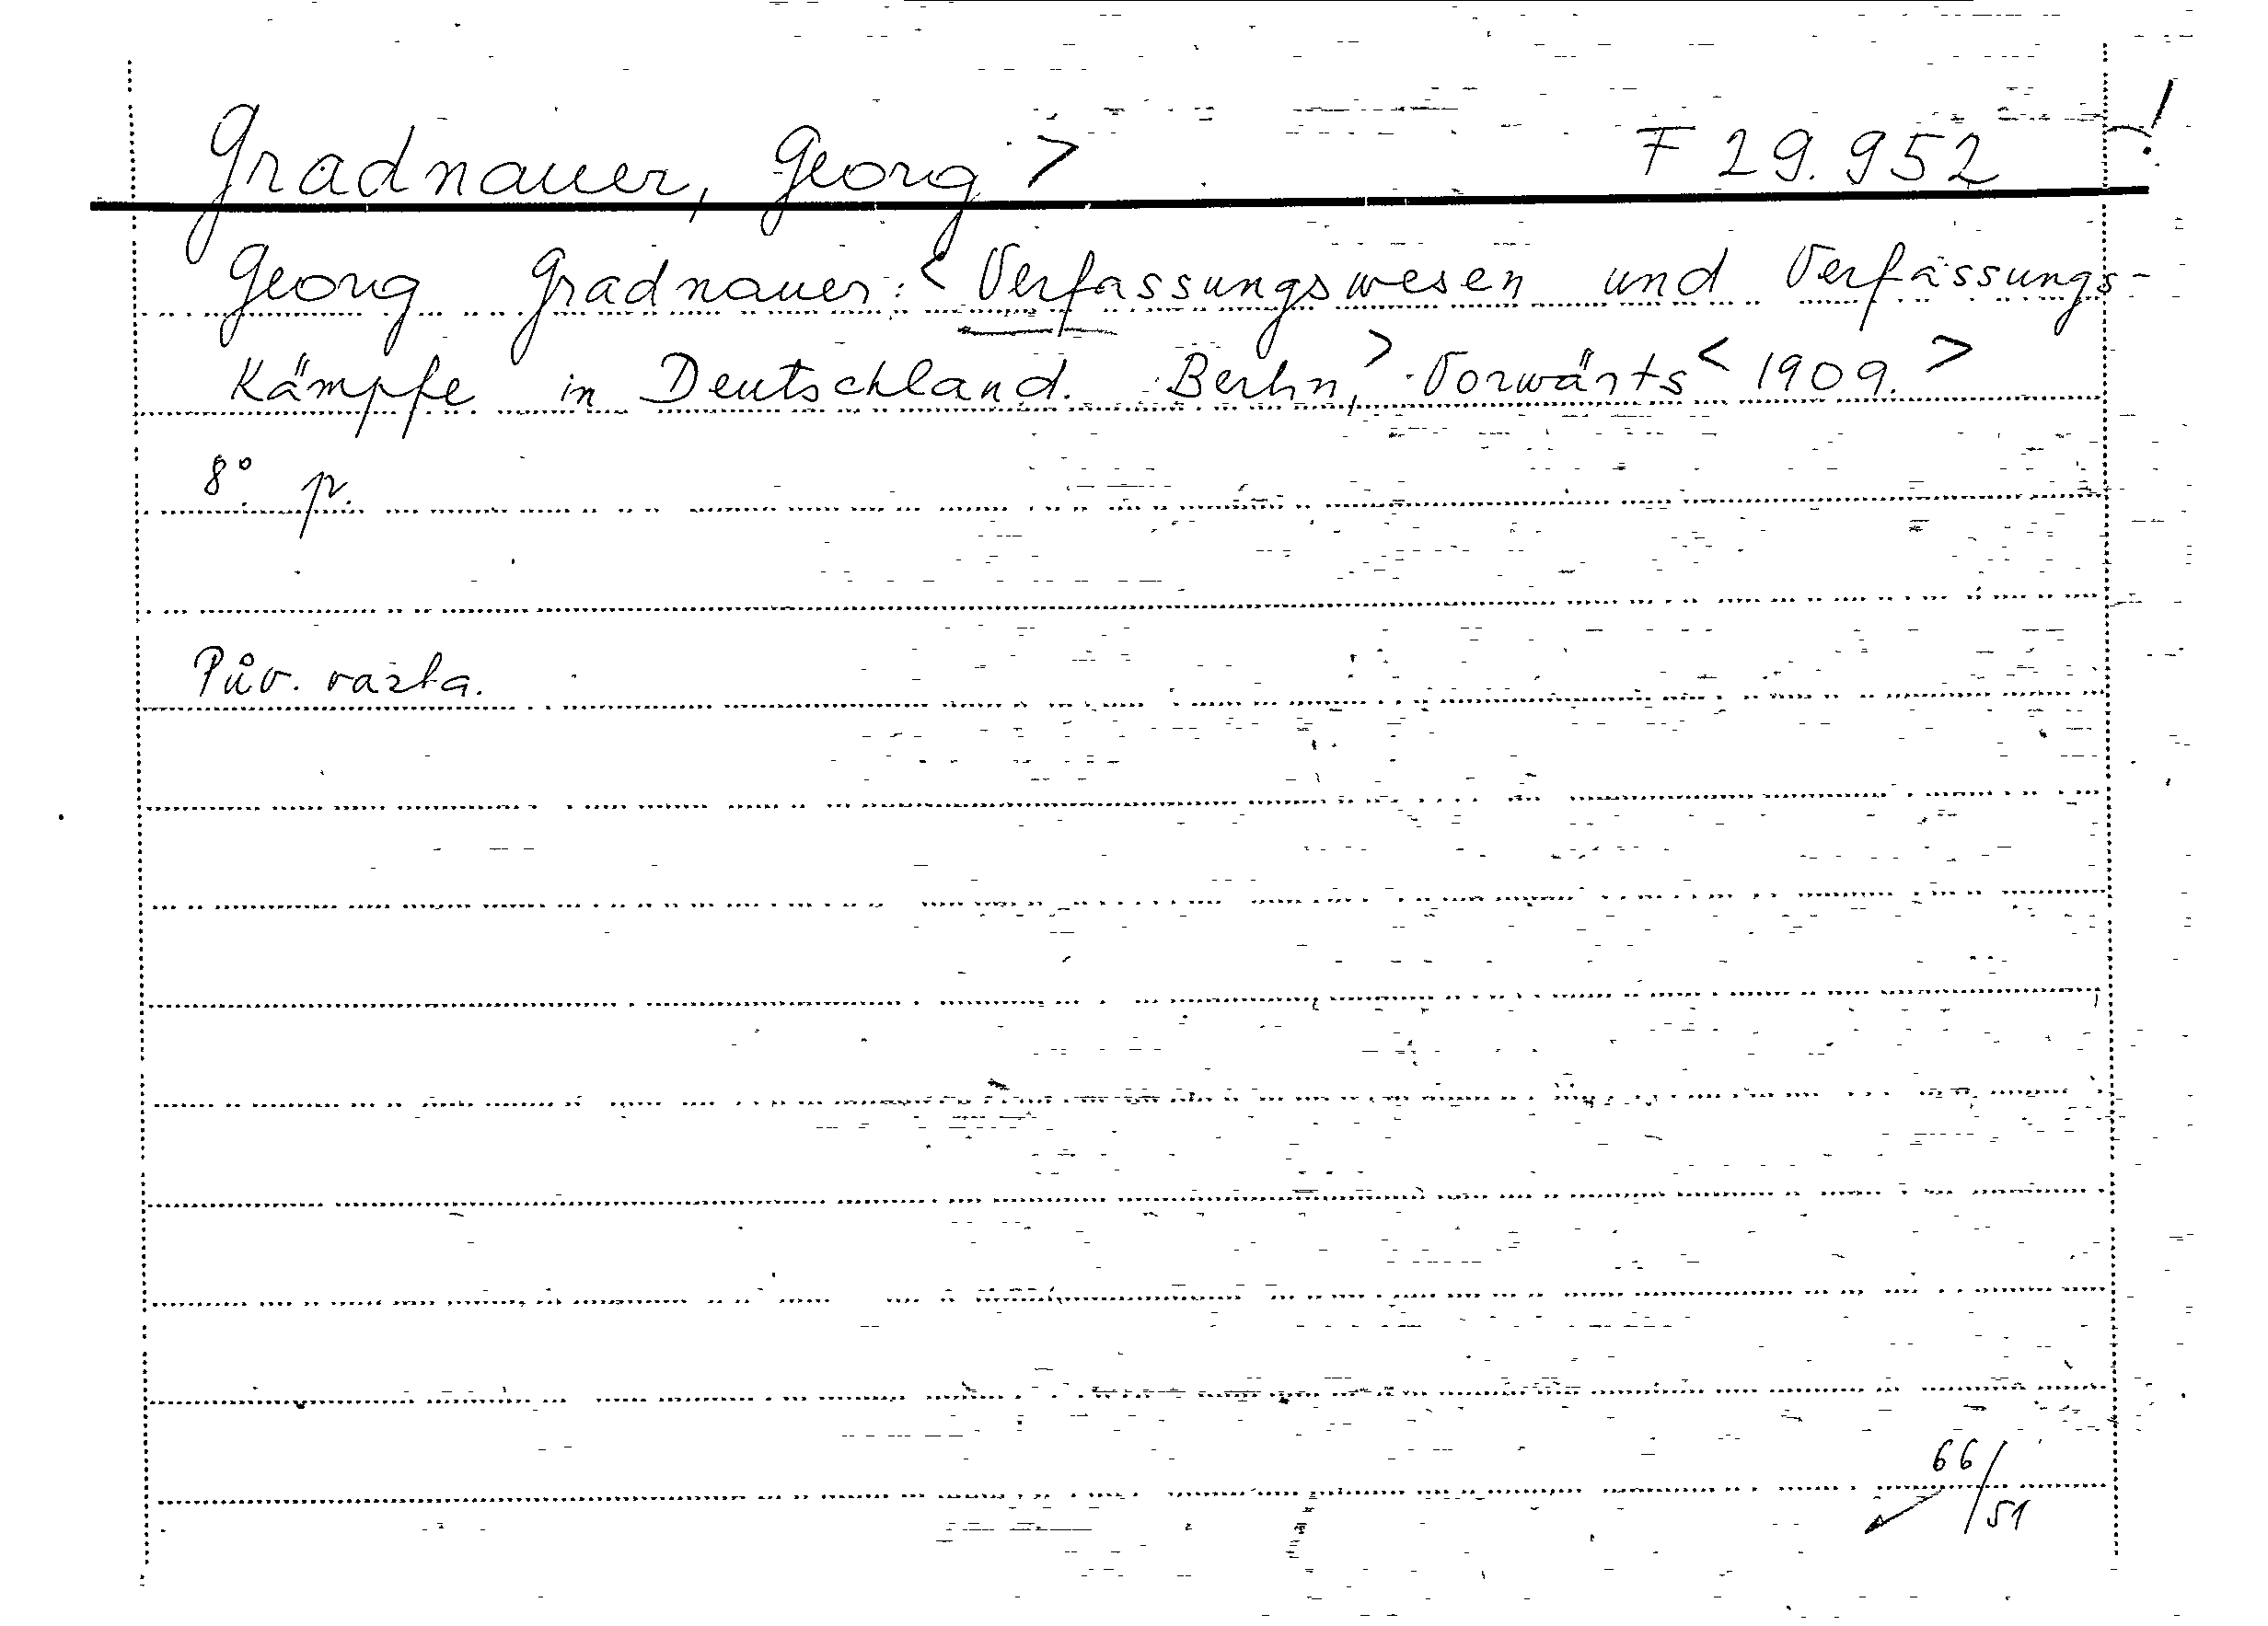 Gradnauer, Georg > F 29.952 !
Georg Gradnauer: < Verfassungswesen und Verfassungs-
kämpfe in Deutschland. Berlin, > Vorwärts < 1909. >
8° p.
Pův. vazba.
66/51